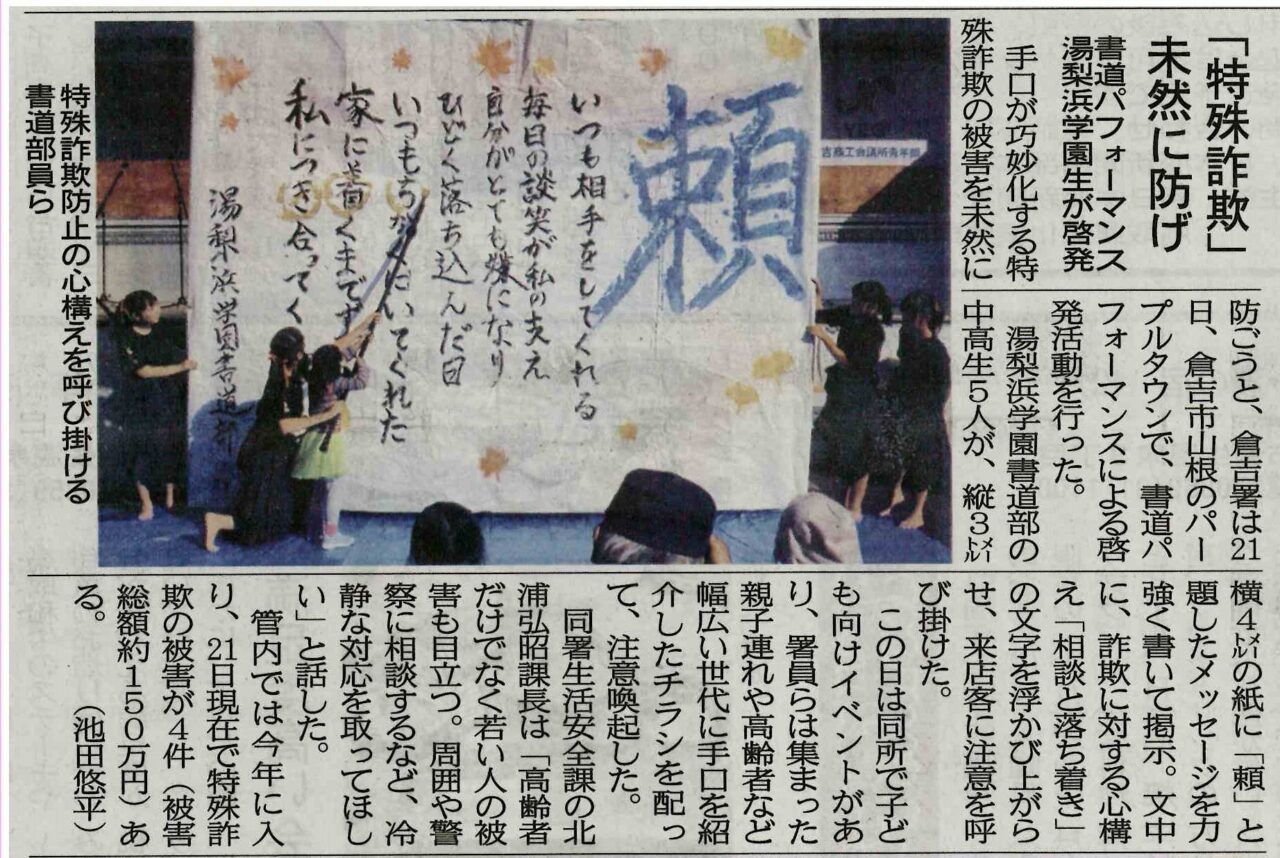 「特殊詐欺」
未然に防げ
書道パフォーマンス
湯梨浜学園生が啓発
手口が巧妙化する特
殊詐欺の被害を未然に
防ごうと、倉吉署は21
日、倉吉市山根のパー
プルタウンで、書道パ
フォーマンスによる啓
発活動を行った。
湯梨浜学園書道部の
中高生5人が、縦3㍍
横4㍍の紙に「頼」と
題したメッセージを力
強く書いて掲示。文中
に、詐欺に対する心構
え「相談と落ち着き」
の文字を浮かび上がら
せ、来店客に注意を呼
び掛けた。
この日は同所で子ど
も向けイベントがあ
り、署員らは集まった
親子連れや高齢者など
幅広い世代に手口を紹
介したチラシを配っ
て、注意喚起した。
同署生活安全課の北
浦弘昭課長は「高齢者
だけでなく若い人の被
害も目立つ。周囲や警
察に相談するなど、冷
静な対応を取ってほし
い」と話した。
管内では今年に入
り、21日現在で特殊詐
欺の被害が4件（被害
総額約150万円）あ
る。
（池田悠平）
頼
いつも相手をしてくれる
毎日の談笑が私の支え
自分がとても嫌になり
ひどく落ち込んだ日
いつもうなずいてくれた
家に着くまでず
私につき合ってく
湯梨浜学園書道部
吉商工会議所青年部
特殊詐欺防止の心構えを呼び掛ける
書道部員ら